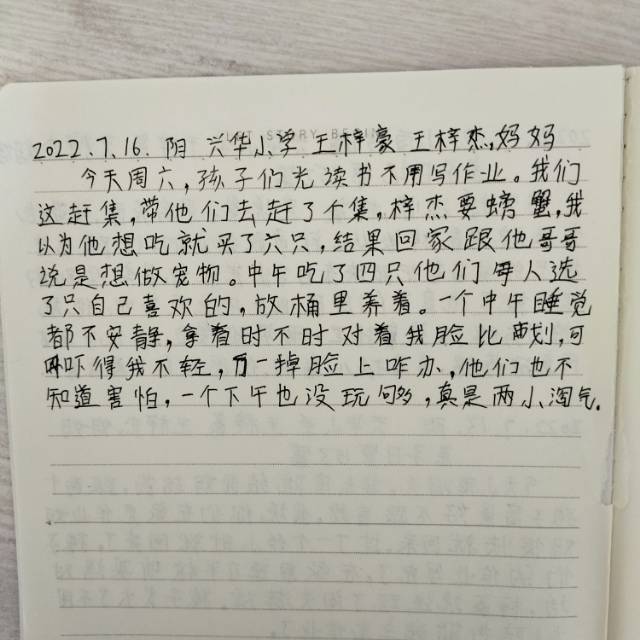 LIFE STORY BEGIN
2022.7.16. 阴 兴华小学 王梓豪 王梓杰,妈妈
今天周六,孩子们光读书不用写作业。我们
这赶集,带他们去赶了个集,梓杰要螃蟹,我
以为他想吃就买了六只,结果回家跟他哥哥
说是想做宠物。中午吃了四只他们每人选
了只自己喜欢的,放桶里养着。一个中午睡觉
都不安静,拿着时不时对着我脸比划,可
吓得我不轻,万一掉脸上咋办,他们也不
知道害怕,一个下午也没玩够,真是两小淘气。